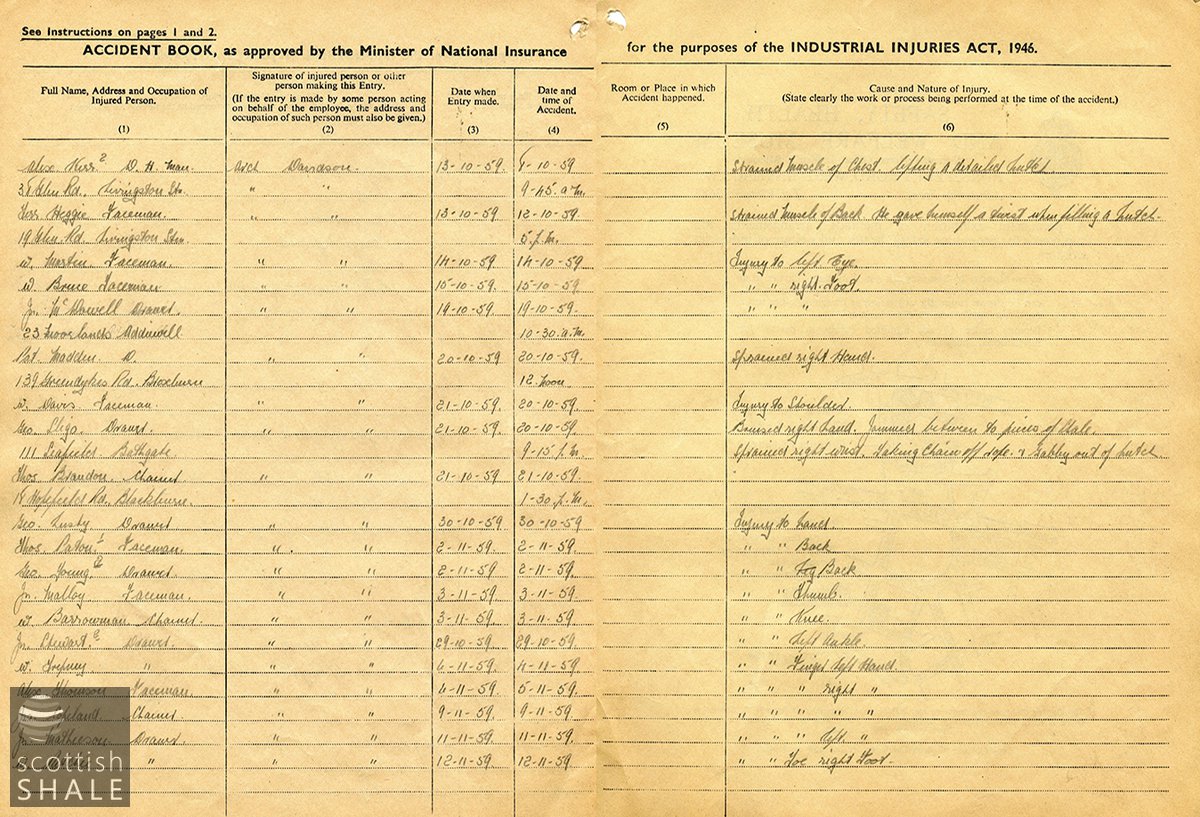 See Instructions on pages 1 and 2.
ACCIDENT BOOK, as approved by the Minister of National Insurance for the purposes of the INDUSTRIAL INJURIES ACT, 1946.
Full Name, Address and Occupation of Injured Person. (1)
Signature of injured person or other person making this Entry. (If the entry is made by some person acting on behalf of the employee, the address and occupation of such person must also be given.) (2)
Date when Entry made. (3)
Date and time of Accident. (4)
Room or Place in which Accident happened. (5)
Cause and Nature of Injury. (State clearly the work or process being performed at the time of the accident.) (6)
Alex Kerr D. H. Man. Arch Davidson. 13-10-59 9-10-59 Strained Muscle of Chest. lifting a derailed hutch
38 Glen Rd. Livingston Stn. " " 9-45 a.m.
Heggie Faceman. " " 13-10-59 12-10-59 Strained Muscle of Back. He gave himself a twist when filling a hutch.
19 Glen Rd. Livingston Stn 5 p.m.
W. Martin Faceman. " " 14-10-59 14-10-59 Injury to left Eye.
W. Bruce Faceman " " 15-10-59 15-10-59 " " right Foot.
Jn. McDowell Drawer " " 19-10-59 19-10-59. " " "
23 Moorlands Addiewell 10-30 a.m.
Pat. Madden D. " " 20-10-59 20-10-59 Sprained right Hand.
139 Greendykes Rd. Broxburn 12 noon
W. Davis Faceman. " " 21-10-59 20-10-59 Injury to Shoulder
Geo. Drawer. " " 21-10-59. 20-10-59 Bruised right hand. Jammed between to pieces of Shale.
111 Bathgate 9-15 p.m. Sprained right wrist. Taking Chain off rope. & out of hutch
Thos. Brandon. Chainer " " 21-10-59 21-10-59
18 Hopefield Rd. Blackburn. 1-30 p.m.
Geo. Lusty Drawer " " 30-10-59 30-10-59 Injury to hand
Thos. Paton Faceman. " " 2-11-59 2-11-59 " " Back
Geo. Young Drawer. " " 2-11-59 2-11-59. " " Back
Jn. Malloy Faceman. " " 3-11-59 3-11-59. " " Thumb.
W. Barrowman Chainer. " " 3-11-59. 3-11-59. " " Knee.
Jn. Stewart Drawer. " " 29-10-59. 29-10-59 " " left Ankle.
W. " " " 4-11-59. 4-11-59 " " Finger left Hand.
Alex Thomson Faceman. " " 4-11-59 5-11-59. " " " right "
Chainer " " 9-11-59 9-11-59. " " " " "
Jn. Mathieson Drawer. " " 11-11-59 11-11-59. " " " left "
" " " 12-11-59 12-11-59. " " Toe right Foot.
scottish
SHALE